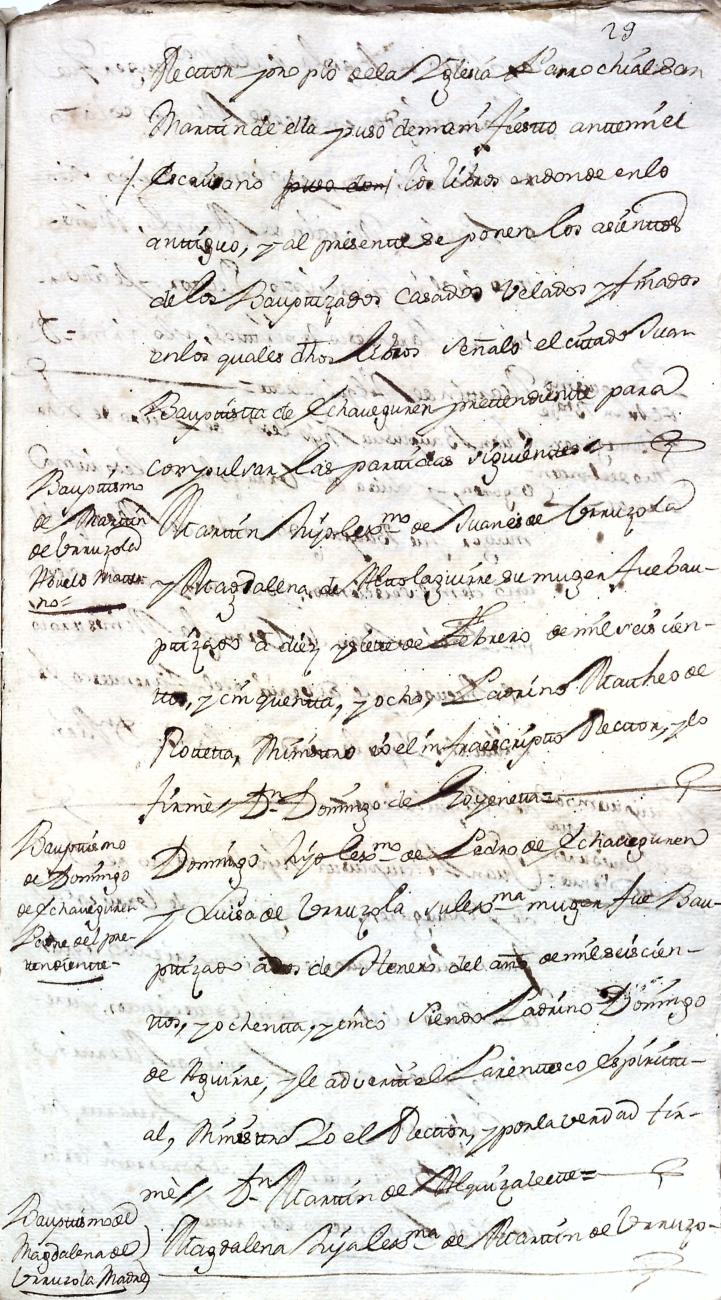 29
Rector propio de la Yglesia Parrochial San
Martin de ella puso de manifiesto ante mi el
Escrivano puso don los libros en donde en lo
antiguo, y al presente se ponen los asientos
de los Bauptizados Casados Velados y finados
en los quales dhos libros señalò el citado Juan
Bauptista de Echaveguren pretendiente para
compulsar las partidas siguientes
Bauptismo
de Martin
de Urruzola
Abuelo Mater-
no=
Martin hijo lexmo de Juanes de Urruzola
y Magdalena de Altolaguirre su muger fue bau-
ptizado a diez y siete de Febrero de mil seis cien-
tos, y cinquenta, y ocho, Padrino Matheo de
Rotetta, Ministro yo el infraescripto Rector, y lo
firmè // Dn Domingo de Goyenetta=
Bauptismo
de Domingo
de Echaveguren
Padre del pre-
tendiente-
Domingo hijo lexmo de Pedro de Echaveguren
y Luisa de Urruzola su lexma muger fue Bau-
ptizado a dos de Henero del año de mil seis cien-
tos, y ochenta, y cinco siendo Padrino Domingo
de Aguirre, y le advertì el Parentesco Espiritu-
al, Ministro Yo el Rector, y por la verdad fir-
mè // Dn Martin de Alquizalete=
Bauptismo de
Magdalena de
Urruzola Madre
Magdalena hija lexma de Martin de Urruzo-